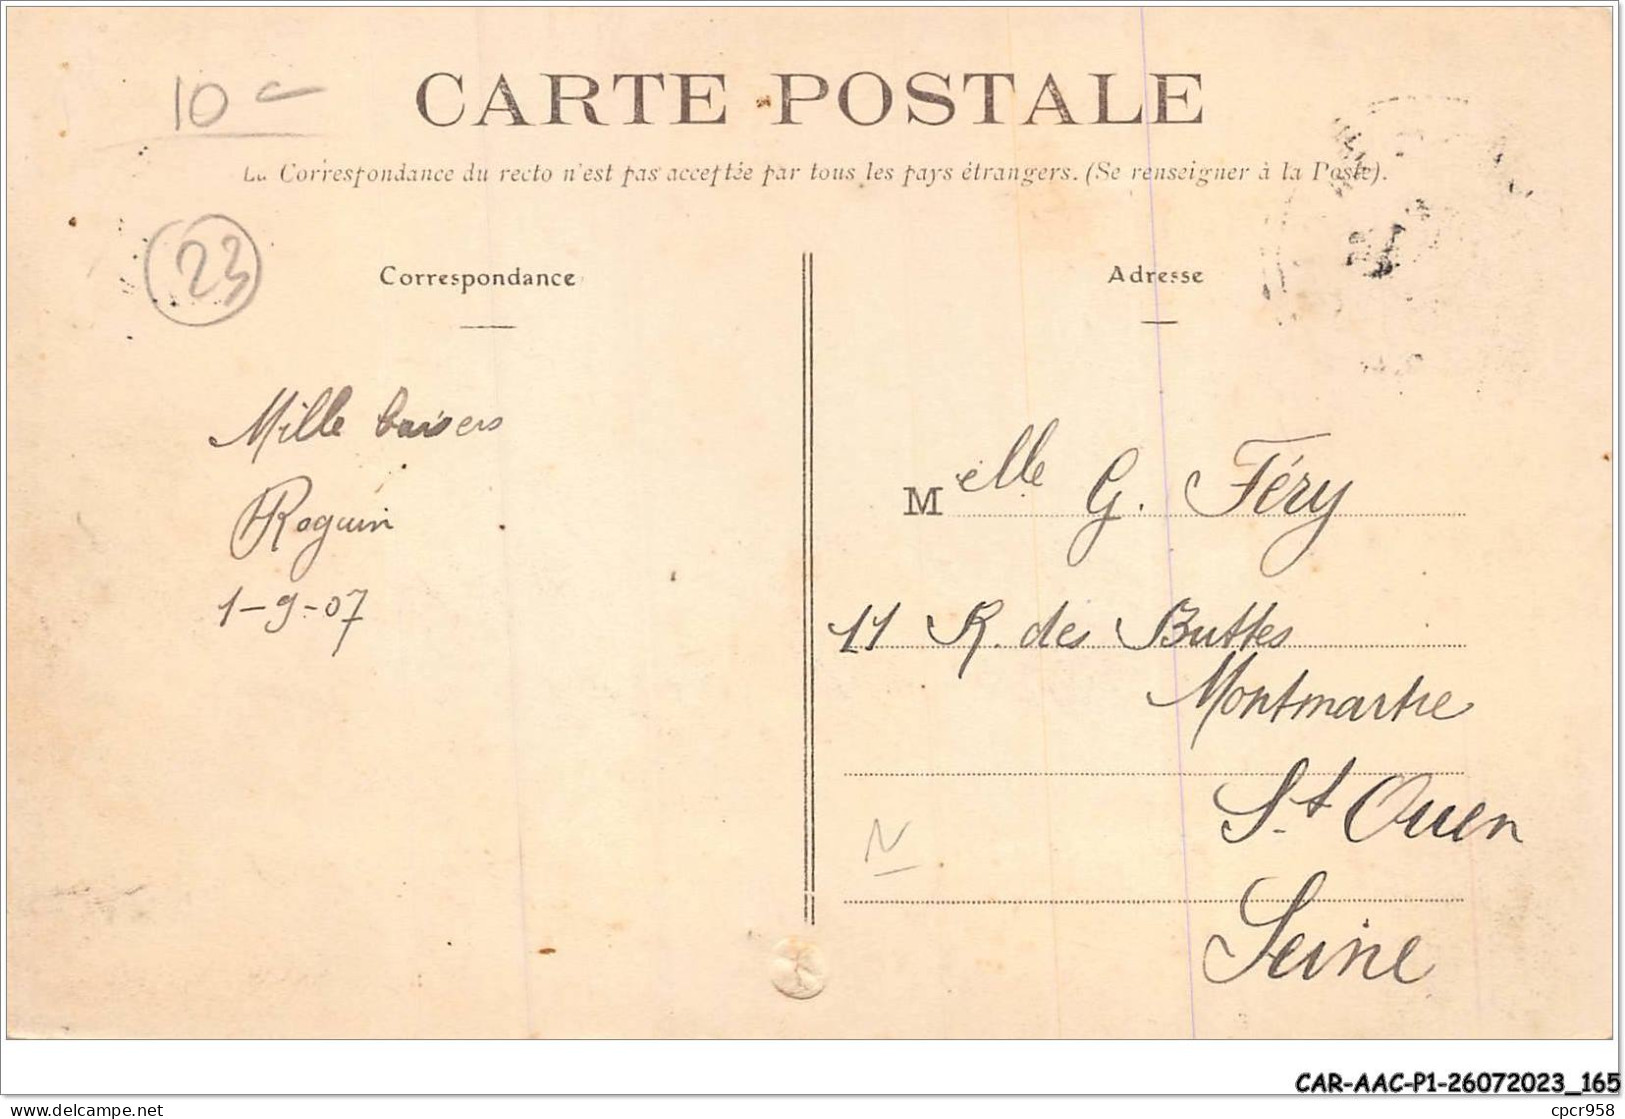 10 c
CARTE POSTALE
La Correspondance du recto n'est pas acceptée par tous les pays étrangers. (Se renseigner à la Poste).
23
Correspondance
Mille baisers
Roguin
1-9-07
Adresse
Melle G. Féry
11 R. des Buttes
Montmartre
St Ouen
Seine
N
CAR-AAC-P1-26072023_165
delcampe.net
cpcr958